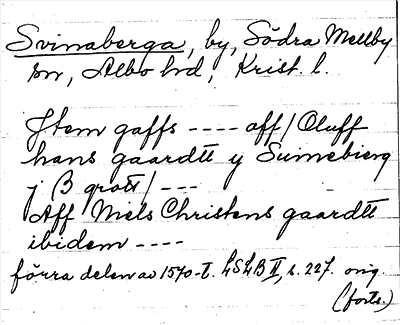 Svinaberga, by, Södra Mellby
sn, Albo hd, Krist. l.
Jtem gaffs ---- aff / Oluff
hans gaardtt y Suinebierg
j B grott / ---
Aff Niels Christens gaardtt
ibidem ----
förra delen av 1570-t. LSLB II, s. 227. orig.
(forts.)